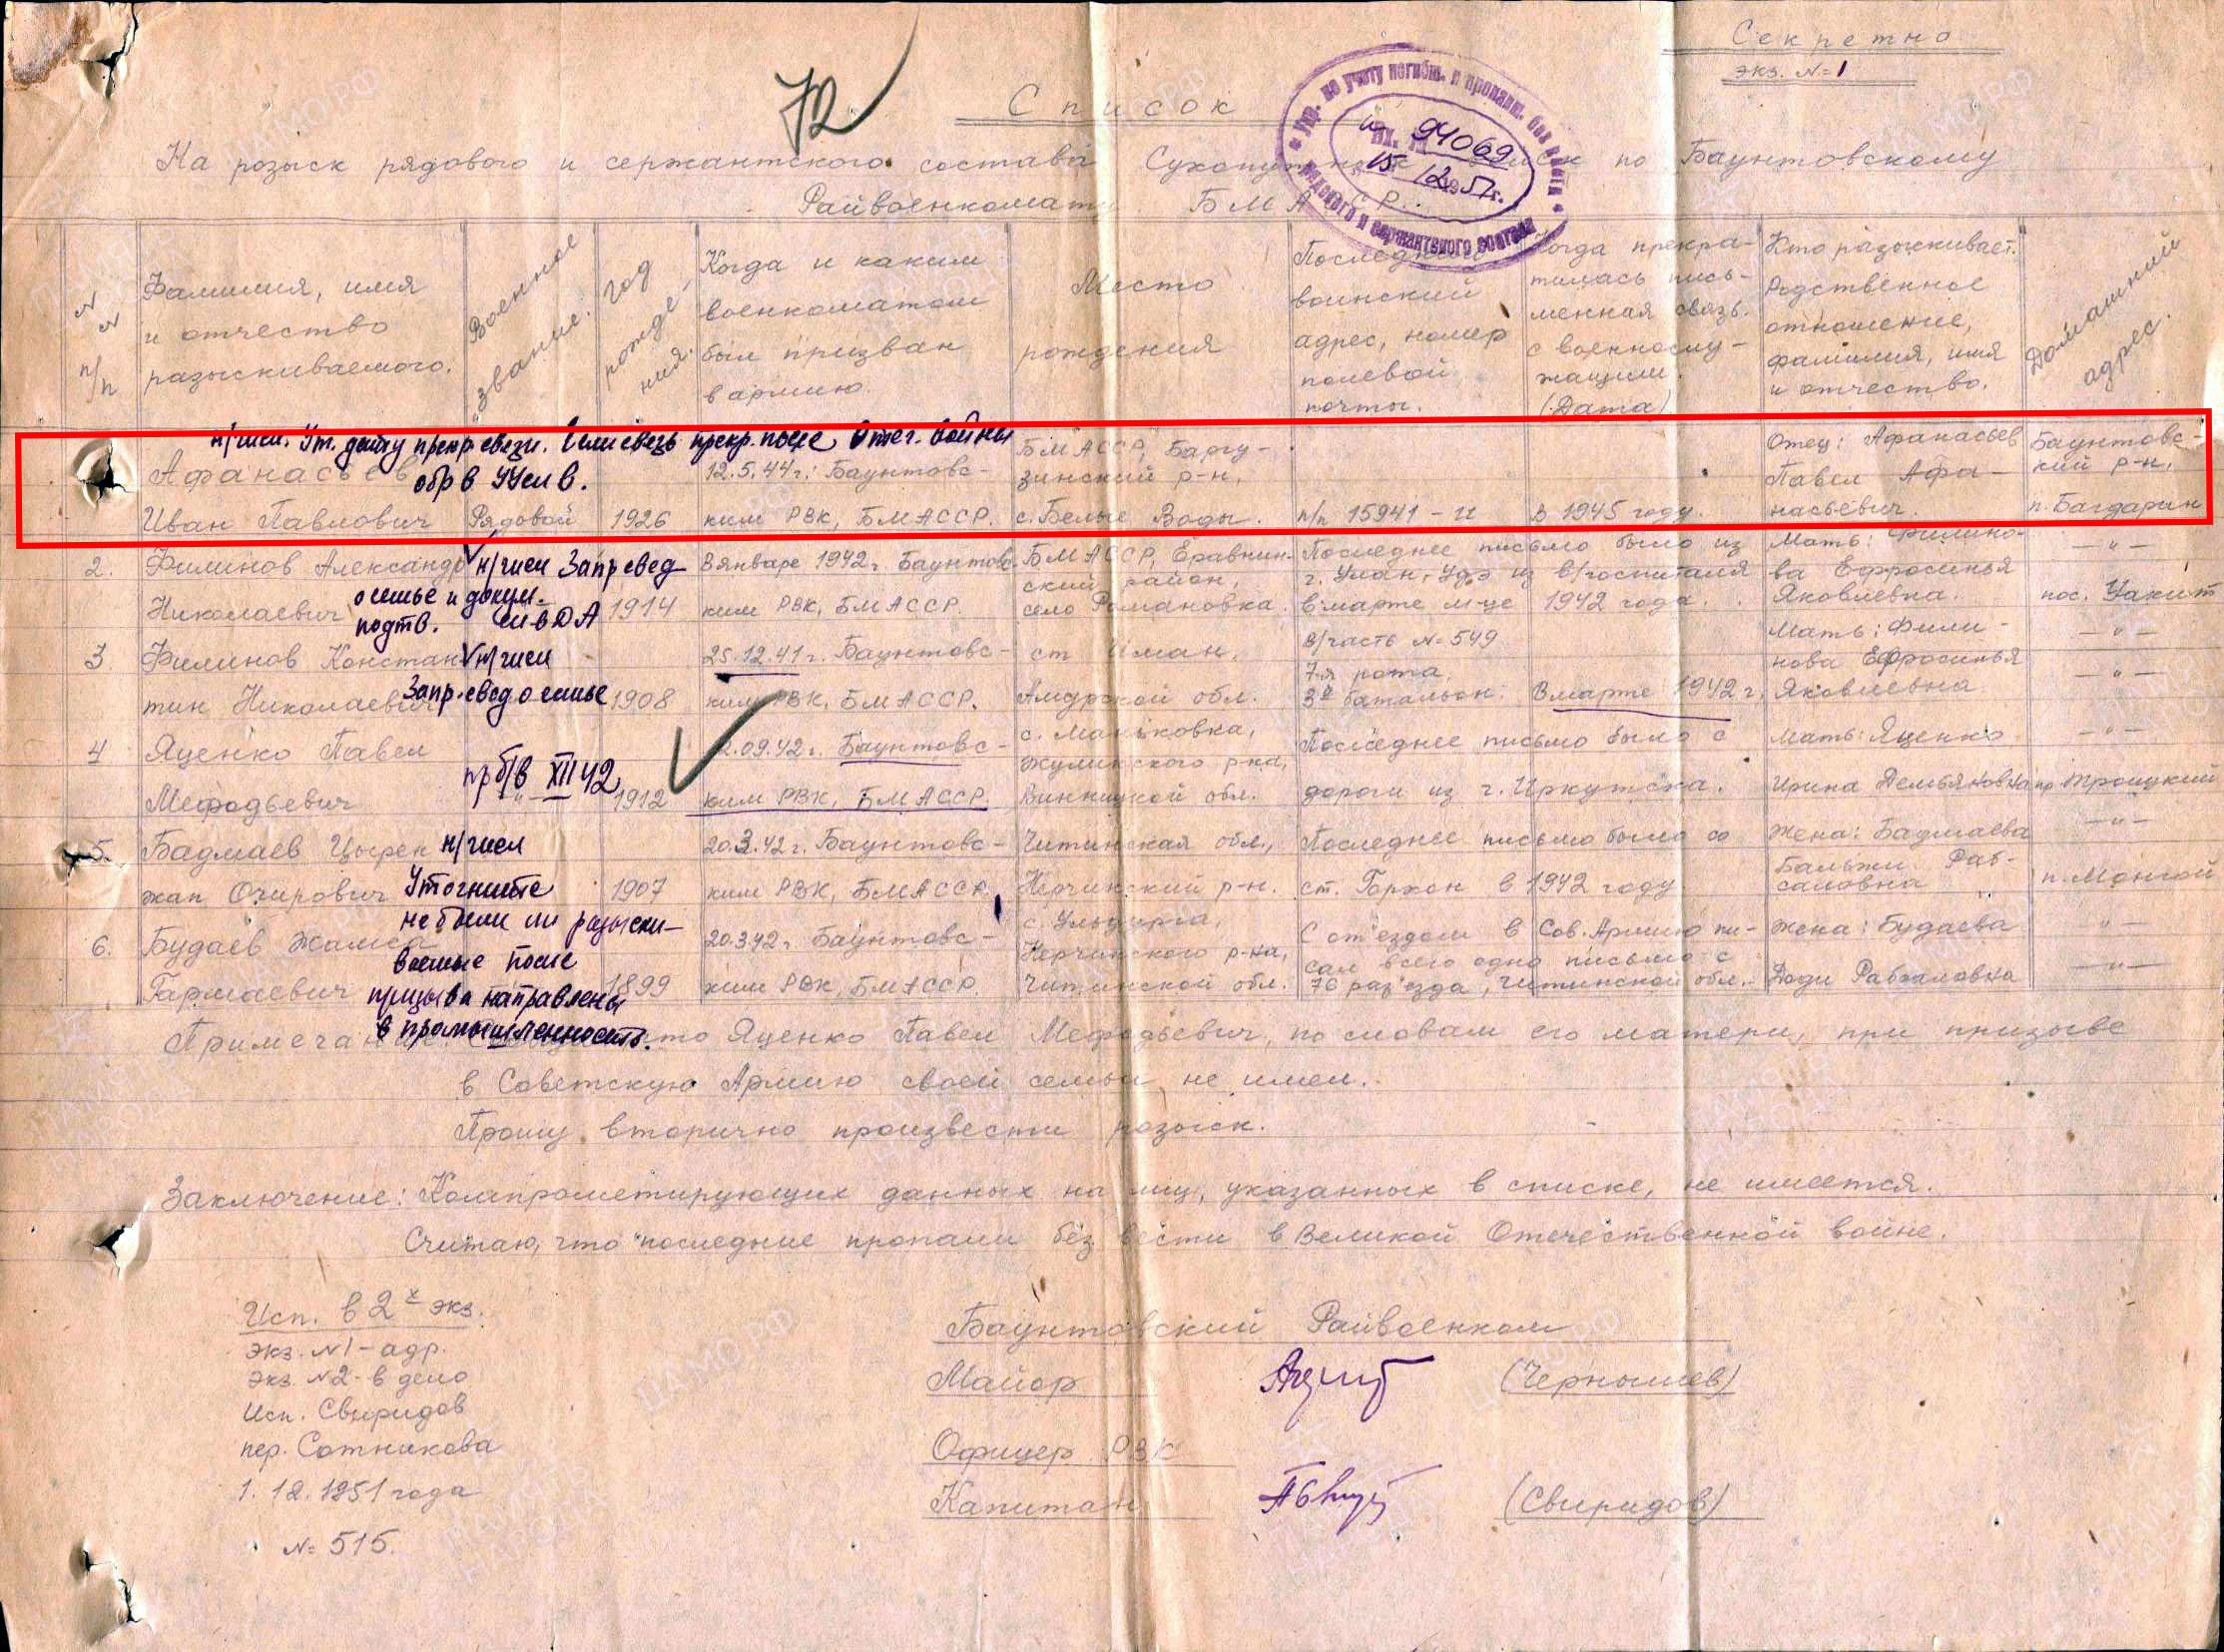 Секретно
экз. №=1
72
Список
Упр. по учету погибш. и пропавш. без вести
рядового и сержантского состава
Вх. 94069
15 12 1951г.
На розыск рядового и сержантского состава Сухопутных по Баунтовскому
Райвоенкомату БМАССР.
№ № п/п
Фамилия, имя и отчество разыскиваемого.
Военное звание.
Год рождения.
Когда и каким военкоматом был призван в армию.
Место рождения
Последний воинский адрес, номер полевой почты.
Когда прекратилась письменная связь с военнослужащим. (Дата)
Кто разыскивает. Родственное отношение, фамилия, имя и отчество.
Домашний адрес.
н/числ. Ут. дату прекр. связи. Если связь прекр. после Отеч. войны
обр в
Афанасьев
Иван Павлович Рядовой 1926
12.5.44г. Баунтовс-
ким РВК, БМАССР.
БМАССР, Баргу-
зинский р-н,
с. Белые Воды.
п/п 15941-и
В 1945 году.
Отец: Афанасьев
Павел Афа-
насьевич.
Баунтовс-
кий р-н,
п. Багдарин
2. Филинов Александр
Николаевич
н/числ Запр свед
о семье и докум.
подтв.
1914
В январе 1942г. Баунтовс-
ким РВК, БМАССР.
БМАССР, Еравнин-
ский район,
село Романовка.
Последнее письмо было из
г. Улан-Удэ из в/госпиталя
в марте м-це 1942 года.
Мать: Филино-
ва Ефросинья
Яковлевна.
—"—
пос. Уакит
3. Филинов Констан
тин Николаевич
н/числ
Запр. свед о семье
1908
25.12.41г. Баунтовс-
ким РВК, БМАССР.
ст Иман,
Амурской обл.
В/часть №=549
7-я рота,
3й батальон.
В марте 1942г.
Мать: Фили-
нова Ефросинья
Яковлевна
—"—
—"—
4 Яценко Павел
Мефодьевич
пр б/в XII 42
1912
.09.42г. Баунтовс-
ким РВК, БМАССР
с. Маньковка,
Джулинского р-на,
Винницкой обл.
Последнее письмо было с
дороги из г. Иркутска.
Мать: Яценко
Ирина Демьяновна
—"—
пр. Троицкий
5. Бадмаев Цырен
жап Очирович
н/числ
Уточните
не были ли разыски-
ваемые после
призыва направлены
в промышленность.
1907
20.3.42г. Баунтовс-
ким РВК, БМАССР.
Читинская обл.,
Нерчинский р-н.
Последнее письмо было со
ст. Горхон в 1942 году
Жена: Бадмаева
Бальжи Раб-
саловна
—"—
п. Монгой
6. Будаев Жамса
Гармаевич
1899
20.3.42г. Баунтовс-
ким РВК, БМАССР
с Ульдурга,
Нерчинского р-на,
Читинской обл.
С от'ездом в Сов. Армию пи-
сал всего одно письмо с
76 раз'езда, Читинской обл.
Жена: Будаева
Доди Рабжаловна
—"—
—"—
Примечание: что Яценко Павел Мефодьевич, по словам его матери, при призыве
в Советскую Армию своей семьи не имел.
Прошу вторично произвести розыск.
Заключение: Компрометирующих данных на лиц, указанных в списке, не имеется.
Считаю, что последние пропали без вести в Великой Отечественной войне.
Исп. в 2х экз.
экз. №1-адр.
экз. №2-в дело
Исп. Свиридов
пер. Сотникова
1.12.1951 года
№=515.
Баунтовский Райвоенком
Майор (Чернышев)
Офицер РВК
Капитан (Свиридов)